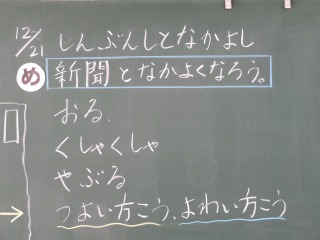 12/21 しんぶんしとなかよし
め 新聞となかよくなろう。
おる.
くしゃくしゃ
やぶる
つよい方こう、よわい方こう